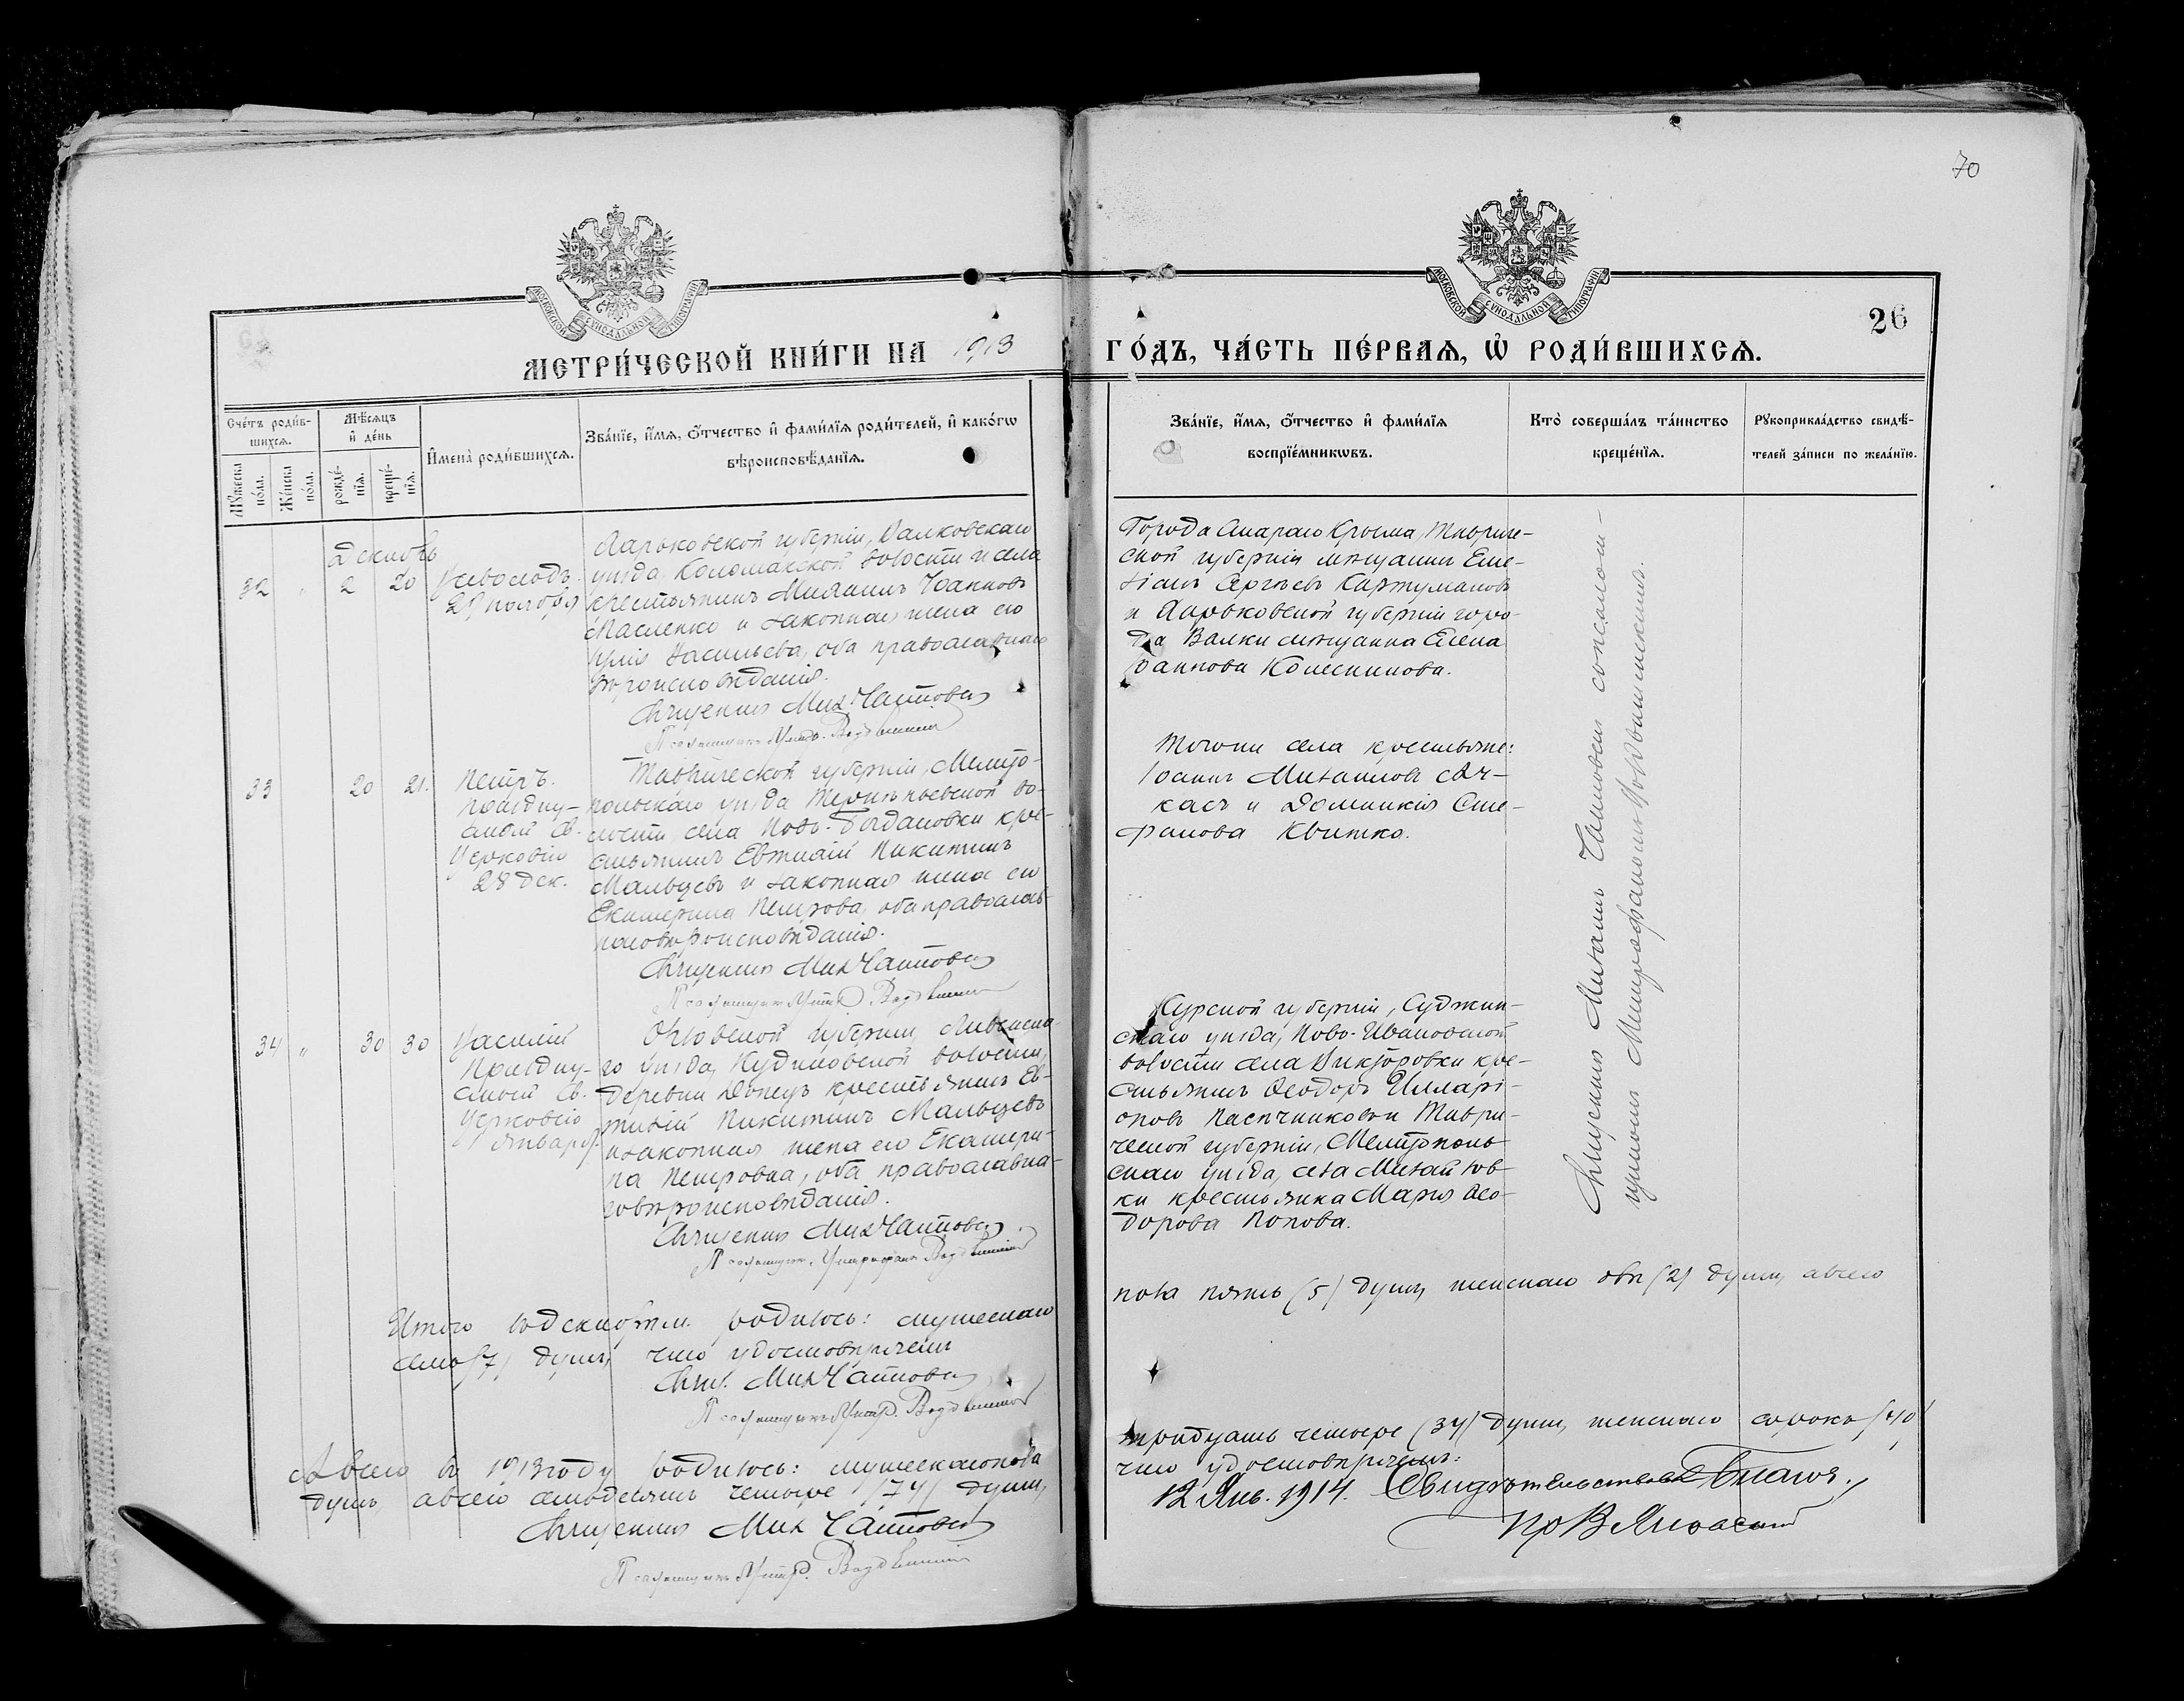 70
МОСКОВСКОЙ СѴНОДАЛЬНОЙ ТИПОГРАФІИ
МОСКОВСКОЙ СѴНОДАЛЬНОЙ ТИПОГРАФІИ
26
МЕТРИ́ЧЕСКОЙ КНИ́ГИ НА 1913 ГО́ДЪ, ЧА́СТЬ ПЕ́РВАѦ, Ѽ РОДИ́ВШИХСѦ.
Сче́тъ роди́в-
шихсѧ.
Мꙋ́жеска
по́ла.
Же́нска
по́ла.
Мѣ́сѧцъ
и҆ де́нь
рожде́-
нїѧ.
креще́-
нїѧ.
И҆мена̀ роди́вшихсѧ.
Зва́нїе, и҆́мѧ, ѻ҆́тчество и҆ фами́лїѧ роди́телей, и҆ како́гѡ
вѣроисповѣ́данїѧ.
Зва́нїе, и҆́мѧ, ѻ҆́тчество и҆ фами́лїѧ
воспрїе́мникѡвъ.
Кто̀ соверша́лъ та́инство
креще́нїѧ.
Рꙋкоприкла́дство свидѣ́-
телей за́писи по жела́нїю.
декабрь
32 " 2 20
Всеволодъ.
29 ноября
Харьковской губерніи, Валковскаго
уѣзда, Коломакской волости и села
крестьянинъ Михаилъ Іоанновъ
Масленко и законная жена его
Юлія Васильева, оба православнаго
вѣроисповѣданія.
Священникъ Мих. Чайповскій
Города Стараго Крыма, Тавриче-
ской губерніи мѣщанинъ Еме-
ліанъ Сергѣевъ
и Харьковской губерніи горо-
да Валки мѣщанка Елена
Іоаннова Колесникова.
33 20 21.
Петръ.
празднуе-
мый Св.
Церковію
28 дек.
Таврической губерніи, Мелито-
польскаго уѣзда Терпѣньевской во-
лости, села Ново-Богдановки кре-
стьянинъ Евтихій Никитинъ
Мальцевъ и законная жена его
Екатерина Петрова, оба православ-
наго вѣроисповѣданія.
Священникъ Мих Чайповскій
Тогоже села крестьяне:
Іоаннъ Михаиловъ
и Домникія Сте-
фанова Квитко.
34 " 30 30
Василій
Празднуе-
мый Св.
Церковію
1 января.
Орловской губерніи, Ливенска-
го уѣзда, Кудиновской волости,
деревни Донецъ крестьянинъ Ев-
тихій Никитинъ Мальцевъ
и законная жена его Екатери-
на Петровна, оба православна-
го вѣроисповѣданія.
Священникъ Мих Чайповскій
Курской губерніи, Суджан-
скаго уѣзда, Ново-Ивановской
волости села Викторовки кре-
стьянинъ Ѳеодоръ Илларі-
оновъ Пасѣчниковъ и Таври-
ческой губерніи, Мелитополь-
скаго уѣзда, села Михайлов-
ки крестьянка Марія Ѳео-
дорова Попова.
Священникъ Михаилъ Чайповскій съ псаломщ-
Итого въ декабрѣ м. родилось: мужескаго пола пять (5) душъ, женскаго двѣ (2) души, а всего
семь (7) душъ, что удостовѣряемъ
Свящ. Мих Чайповскій
А всего въ 1913 году родилось: мужескаго пола тридцать четыре (34) души, женскаго сорокъ (40)
душъ, а всего семьдесятъ четыре (74) души, что удостовѣряемъ:
Священникъ Мих Чайповскій
12 Янв. 1914. Свидѣтельствовалъ